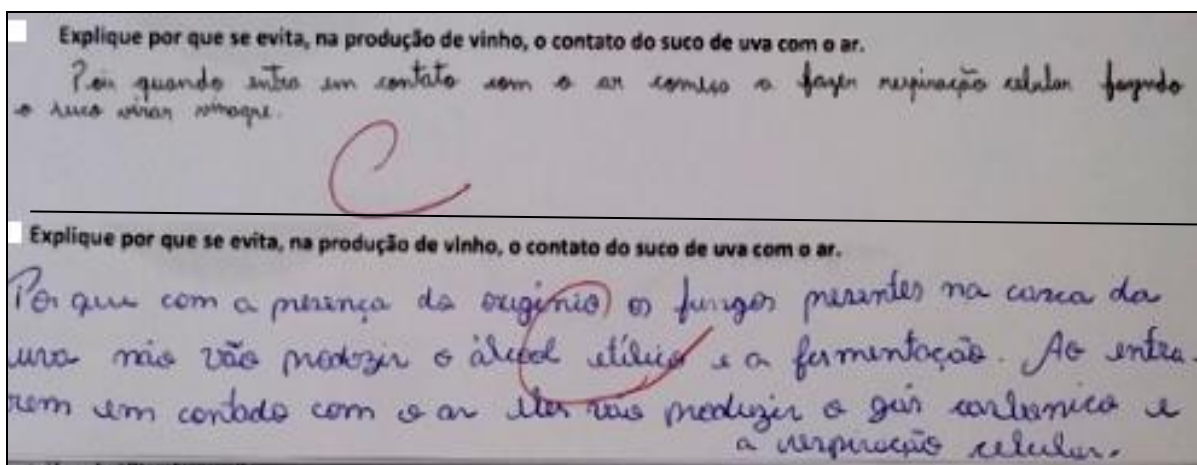 Explique por que se evita, na produção de vinho, o contato do suco de uva com o ar.
Poi quando entra em contato com o ar começa a fazer respiração celular fazendo
o suco virar vinagre.
C
Explique por que se evita, na produção de vinho, o contato do suco de uva com o ar.
Por que com a presença do oxigênio os fungos presentes na casca da
uva não vão produzir o álcool etílico e a fermentação. Ao entra-
rem em contado com o ar eles vão produzir o gás carbonico e
a respiração celular.
C